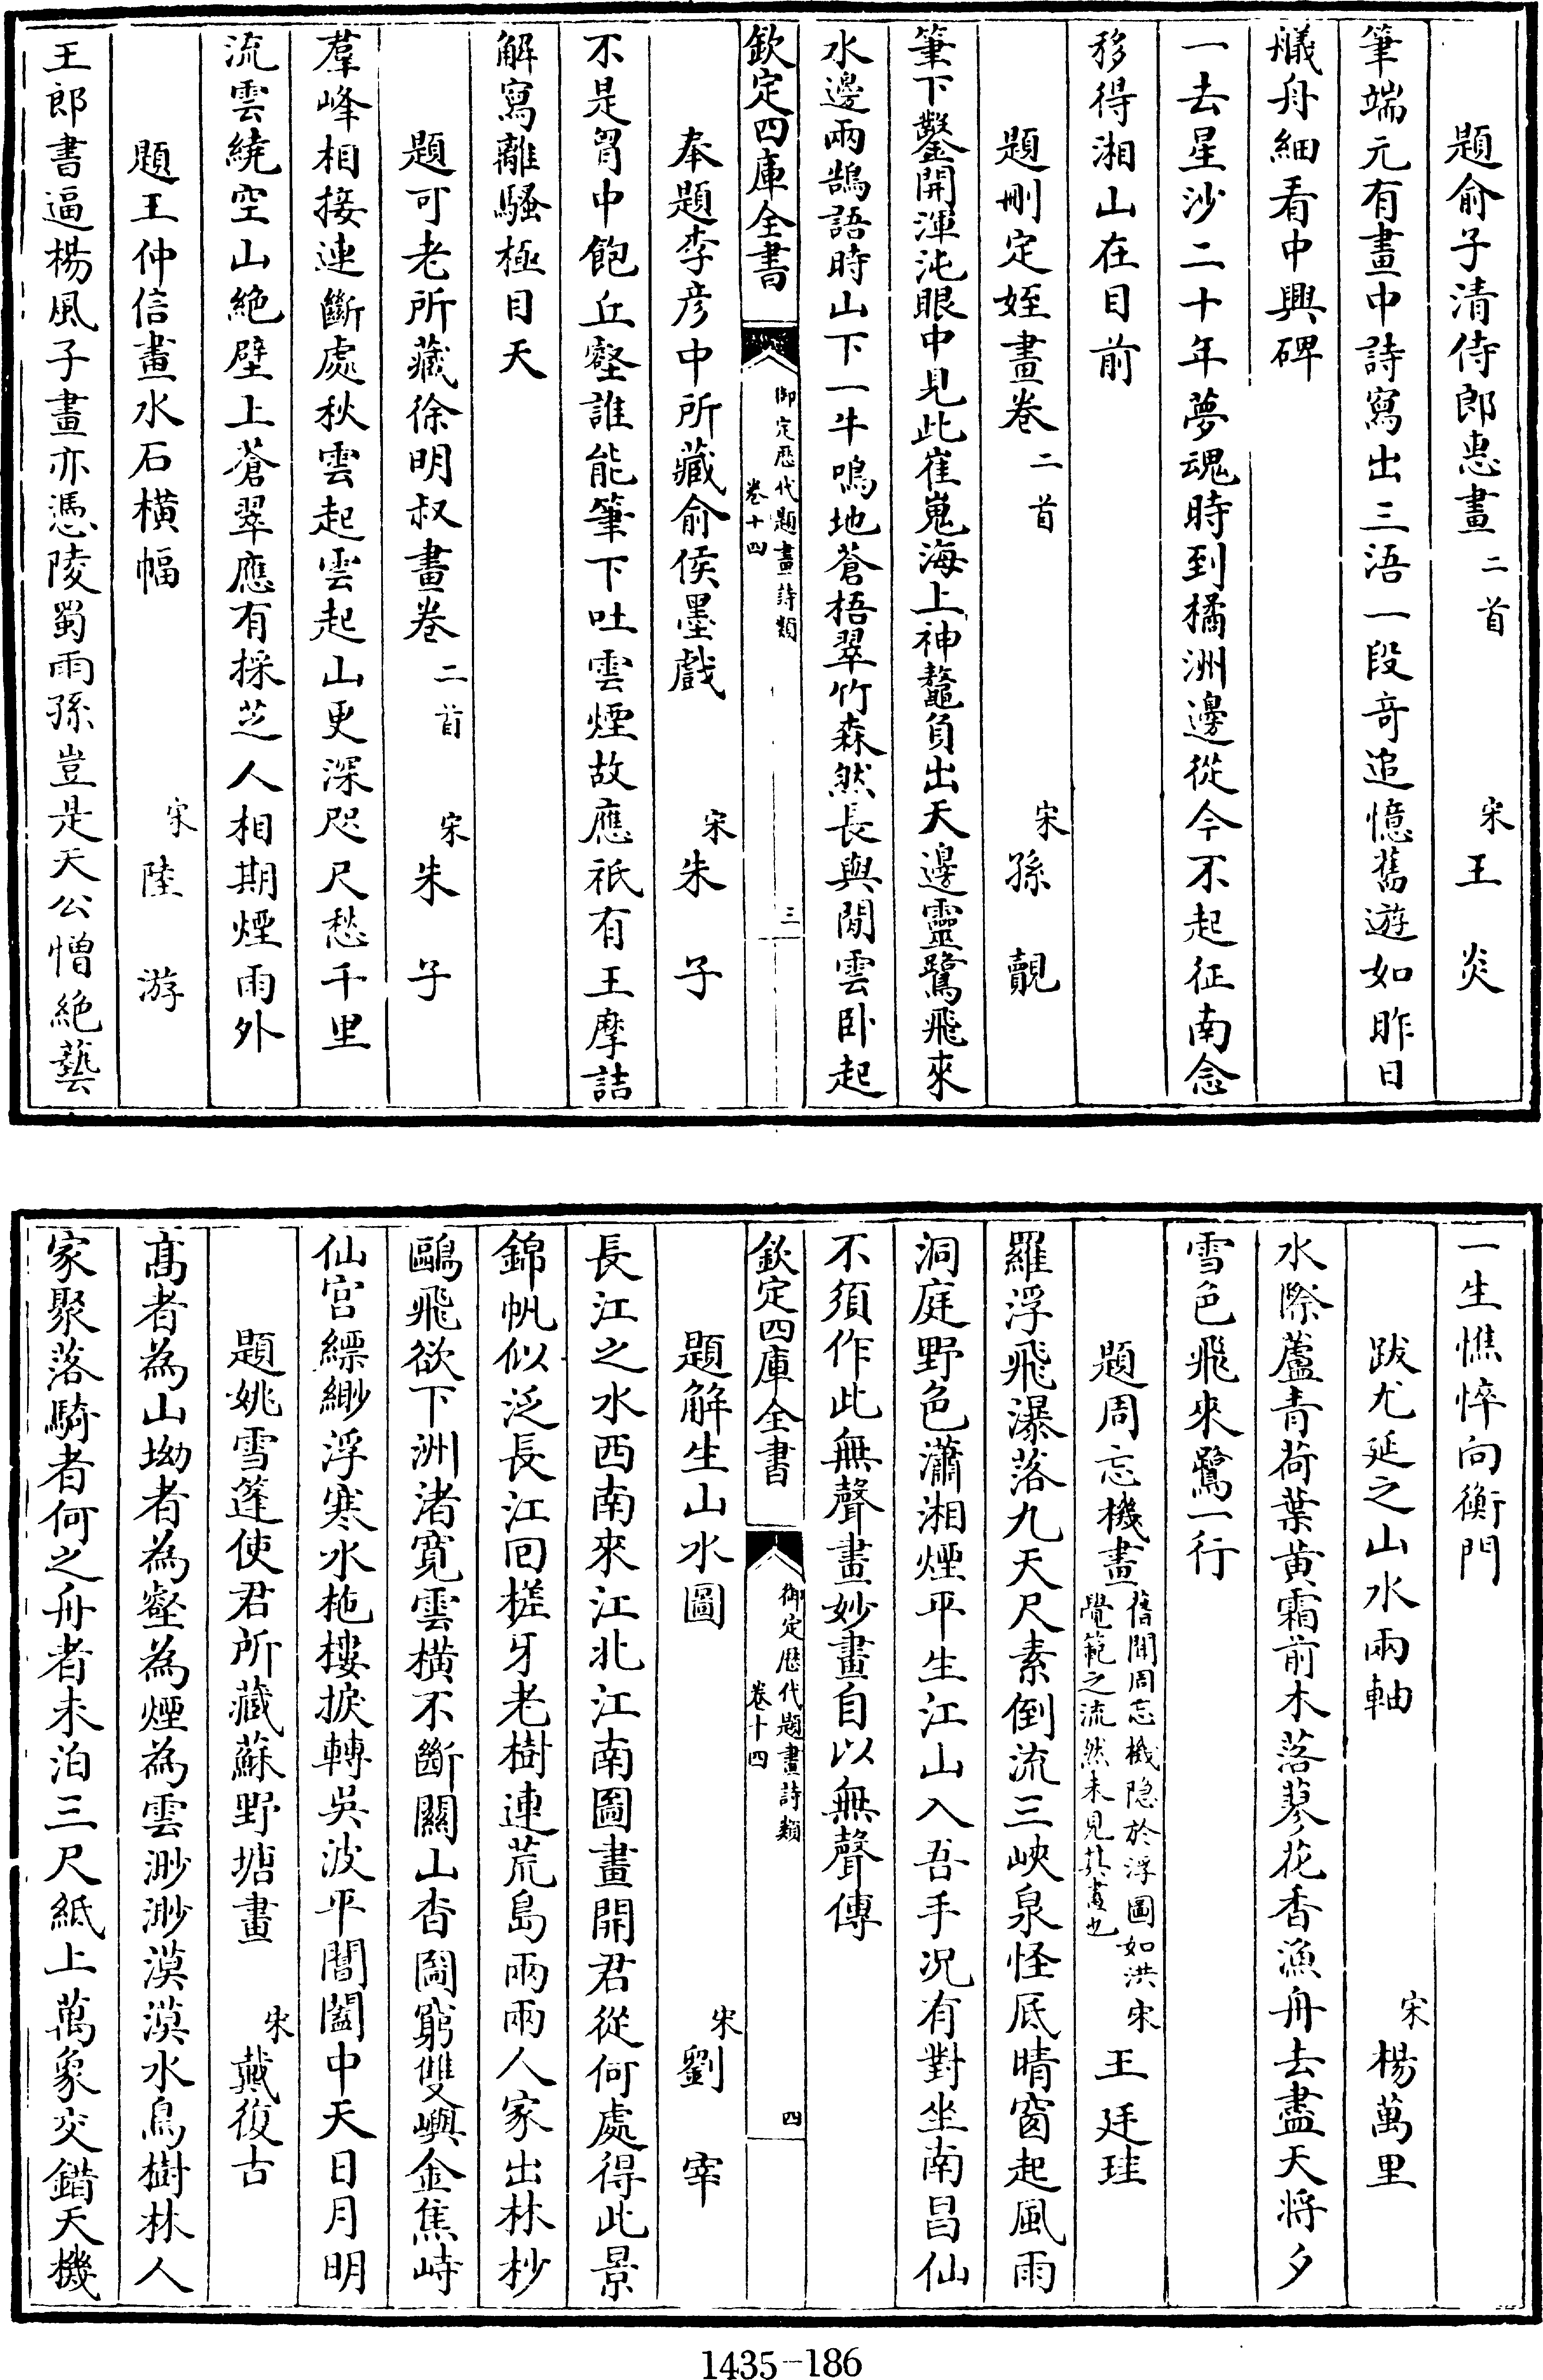 題俞子清侍郎惠畫二首 宋王炎
筆端元有畫中詩寫出三浯一段奇追憶舊遊如昨日
艤舟細看中興碑
一去星沙二十年夢魂時到橘洲邊從今不起征南念
移得湘山在目前
題刪定姪畫卷二首 宋孫覿
筆下鑿開渾沌眼中見此崔嵬海上神鼇負出天邊靈鷲飛來
水邊兩鵲語時山下一牛鳴地蒼梧翠竹森然長與閒雲卧起
欽定四庫全書 御定歷代題畫詩類 卷十四 三
奉題李彦中所藏俞侯墨戲 宋朱子
不是胷中飽丘壑誰能筆下吐雲煙故應祇有王摩詰
解寫離騷極目天
題可老所藏徐明叔畫卷二首 宋朱子
羣峰相接連斷處秋雲起雲起山更深咫尺愁千里
流雲繞空山絶壁上蒼翠應有採芝人相期煙雨外
題王仲信畫水石橫幅 宋陸游
王郎書逼楊風子畫亦憑陵蜀雨孫豈是天公憎絶藝
一生憔悴向衡門
跋尤延之山水兩軸 宋楊萬里
水際蘆青荷葉黄霜前木落蓼花香漁舟去盡天將夕
雪色飛來鷺一行
題周忘機畫 舊聞周忘機隐於浮圖如洪覺範之流然未見其畫也 宋王廷珪
羅浮飛瀑落九天尺素倒流三峽泉怪底晴窗起風雨
洞庭野色瀟湘煙平生江山入吾手况有對坐南昌仙
不須作此無聲畫妙畫自以無聲傳
欽定四庫全書 御定歷代題畫詩類 卷十四 四
題解生山水圖 宋劉宰
長江之水西南來江北江南圖畫開君從何處得此景
錦帆似泛長江回槎牙老樹連荒島兩兩人家出林杪
鷗飛欲下洲渚寛雲橫不斷關山杳岡窮雙嶼金焦峙
仙宫縹緲浮寒水柂樓捩轉吳波平閶闔中天日月明
題姚雪篷使君所藏蘇野塘畫 宋戴復古
髙者為山坳者為壑為煙為雲渺渺漠漠水鳥樹林人
家聚落騎者何之舟者未泊三尺紙上萬象交錯天機
1435-186